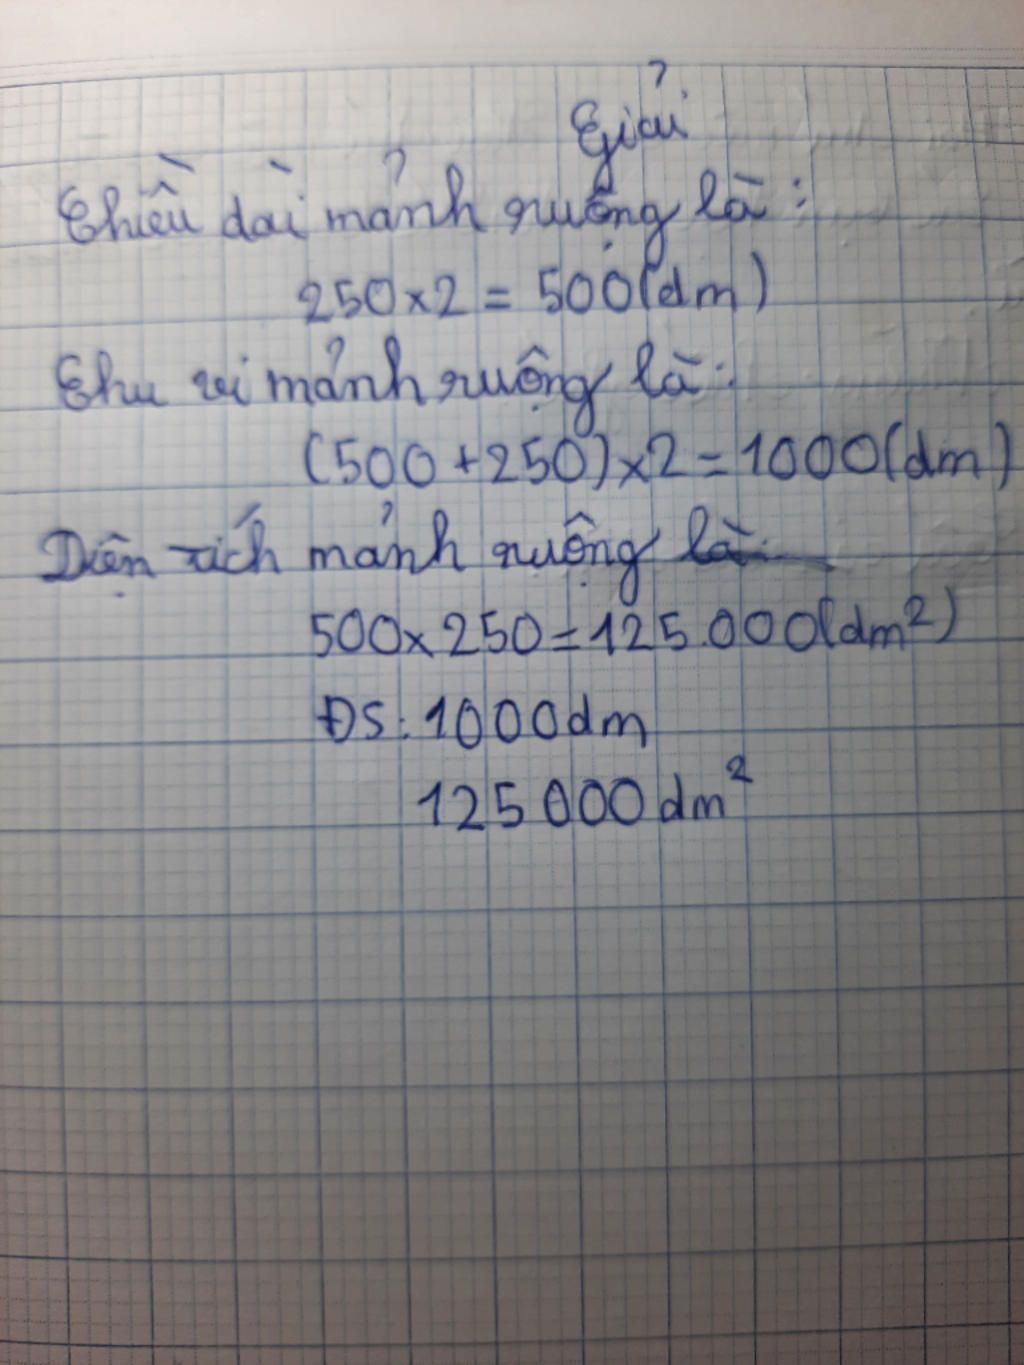 Giải
Chiều dài mảnh ruộng là:
250x2 = 500(dm)
Chu vi mảnh ruộng là:
(500+250)x2=1000(dm)
Diện tích mảnh ruộng là
500x250=125.000(dm²)
ĐS: 1000dm
125000dm²